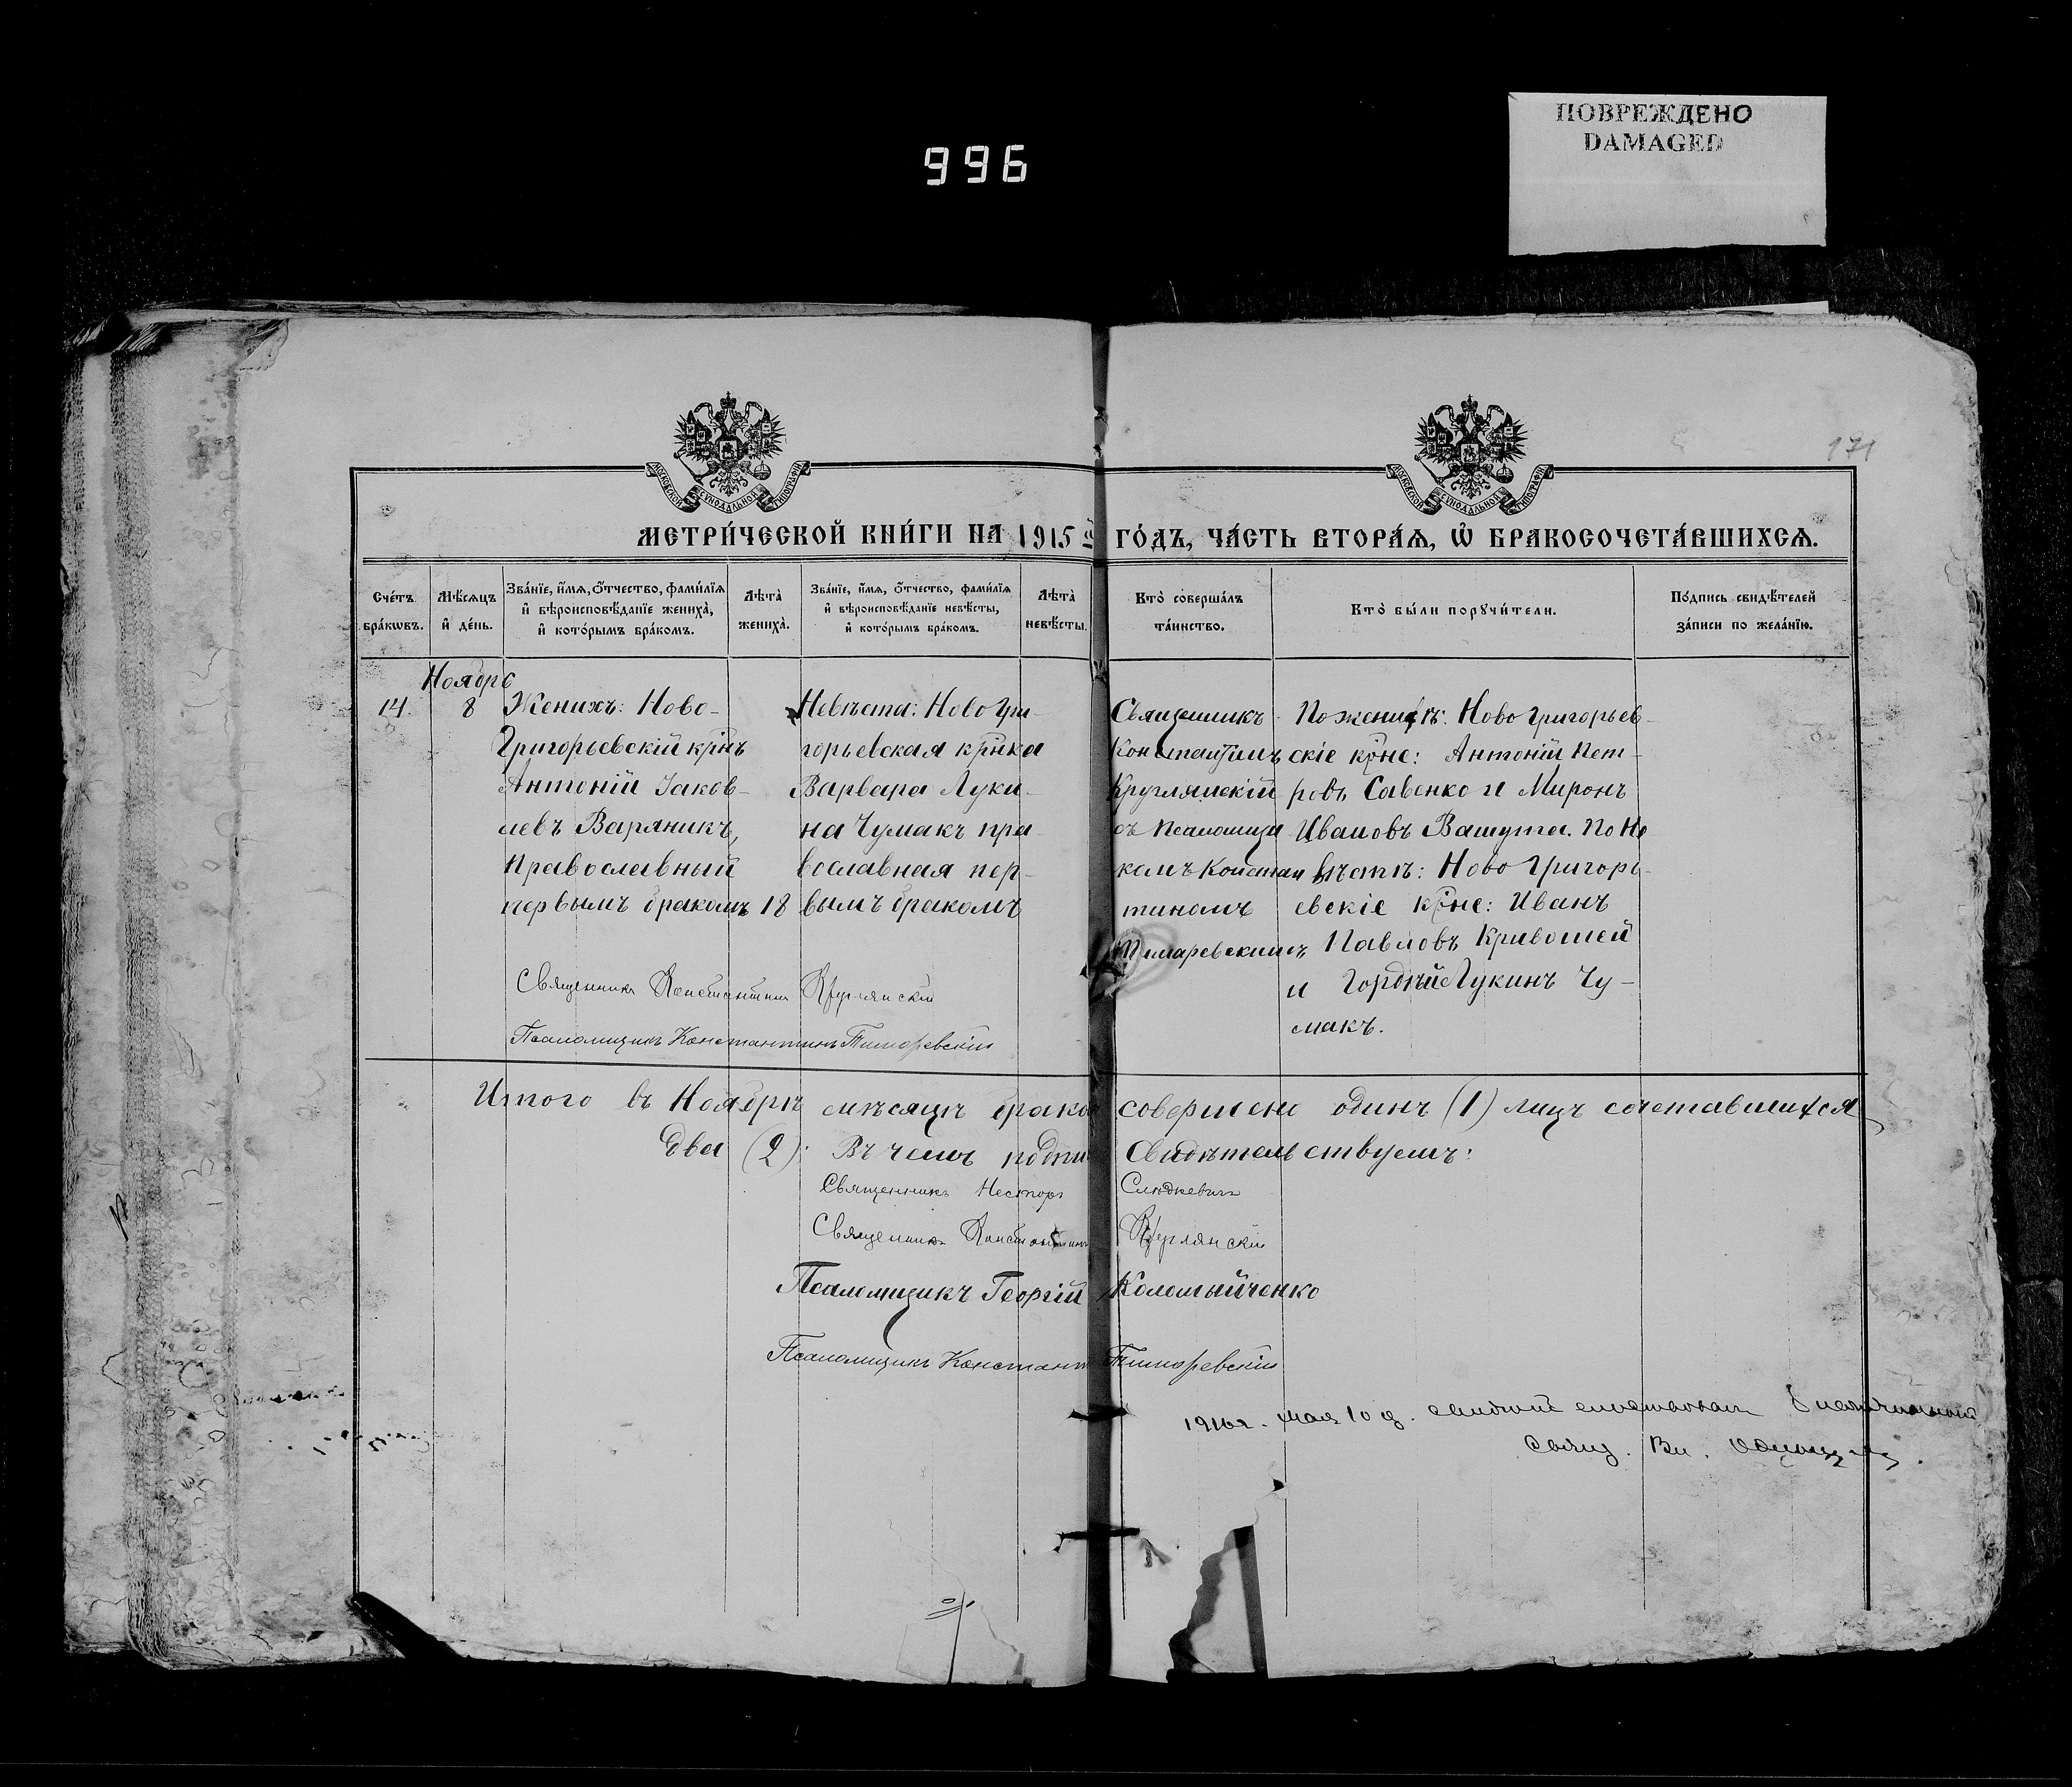 ПОВРЕЖДЕНО
DAMAGED
996
171
МОСКОВСКОЙ СѴНОДАЛЬНОЙ ТИПОГРАФІИ
МОСКОВСКОЙ СѴНОДАЛЬНОЙ ТИПОГРАФІИ
МЕТРИ́ЧЕСКОЙ КНИ́ГИ НА 1915 й ГО́ДЪ, ЧА́СТЬ ВТОРА́Ѧ, Ѽ БРАКОСОЧЕТА́ВШИХСѦ.
Сче́тъ бра́кѡвъ.
Мѣ́сѧцъ и҆ де́нь.
Зва́нїе, и҆́мѧ, о҆́тчество, фами́лїѧ и҆ вѣроисповѣ́данїе жениха̀, и҆ кото́рымъ бра́комъ.
Лѣта̀ жениха̀.
Зва́нїе, и҆́мѧ, о҆́тчество, фами́лїѧ и҆ вѣроисповѣ́данїе невѣ́сты, и҆ кото́рымъ бра́комъ.
Лѣта̀ невѣ́сты.
Кто̀ соверша́лъ та́инство.
Кто̀ бы́ли порꙋчи́тели.
По́дпись свидѣ́телей за́писи по жела́нїю.
Ноябрь
14. 8 Женихъ: Ново-
Григорьевскій крнъ
Антоній Іаков-
левъ Варяникъ,
Православный
первымъ бракомъ 18
Невѣста: НовоГри-
горьевская крнка
Варвара Луки-
на Чумакъ пра-
вославная пер-
вымъ бракомъ
Священникъ
Константинъ
Круглянскій
съ Псаломщи
комъ Констан
тиномъ
Тимаревскимъ
По женихѣ: НовоГригорьев-
скіе крне: Антоній Пет-
ровъ Савенко и Миронъ
Ивановъ Вашута. По Не
вѣстѣ: НовоГригорь-
евскіе крне: Иванъ
Павловъ Кривошей
и Гордѣй Лукинъ Чу-
макъ.
Священникъ Константинъ Круглянскій
Псаломщикъ Константинъ Тимаревскій
Итого въ Ноябрѣ мѣсяцѣ брако совершено одинъ (1) лицъ сочетавшихся
два (2). Въ чемъ подпи Свидѣтельствуемъ:
Священникъ Несторъ Слюдкевичъ
Священникъ Константинъ Круглянскій
Псаломщикъ Георгій Коломыйченко
Псаломщикъ Константи Тимаревскій
1916 г. мая 10 д.
Свящ. Вл.